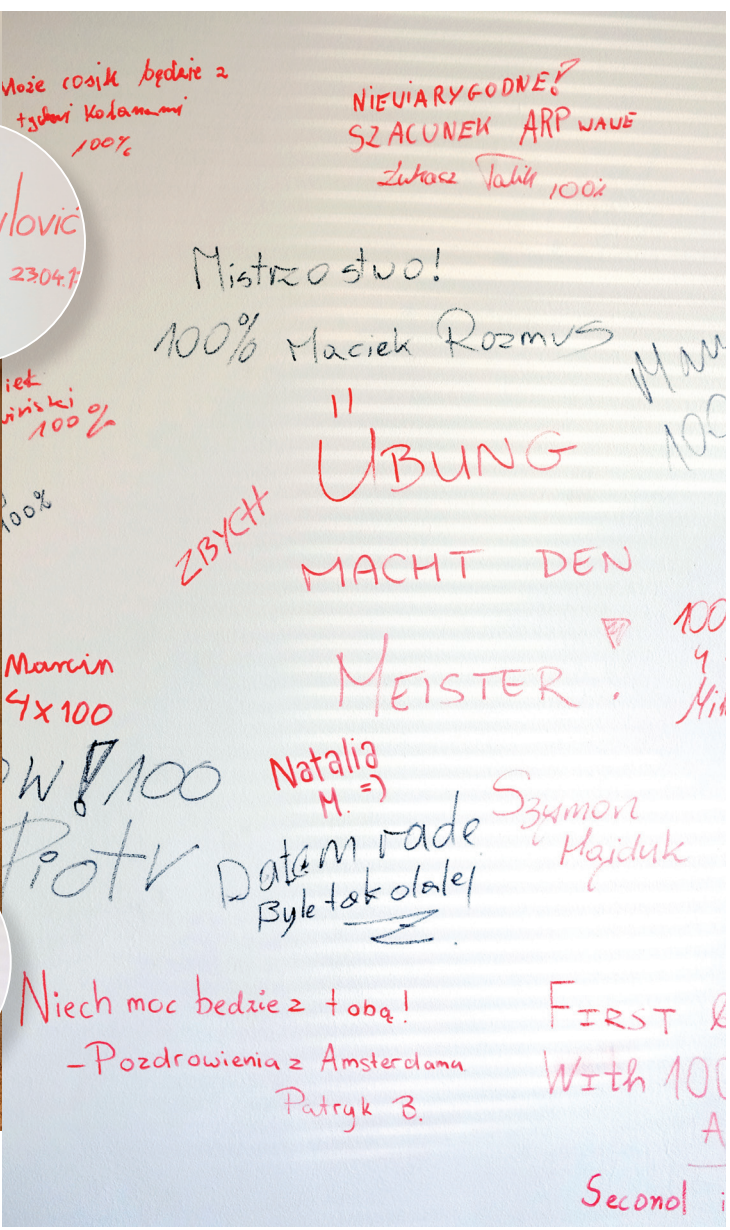 Może cosik będzie z
tydwi kolanami
100%
NIEWIARYGODNE!
SZACUNEK ARP WAVE
Łukasz Talik 100%
lović
23.04.1
Mistrzostwo!
100% Maciek Rozmus
100%
100%
ÜBUNG
ZBYCH
MACHT DEN
MEISTER!
100
4
Marcin
4x100
W!100
Piotr
Natalia
M. =)
Dałem rade
Byle tak dalej
Szymon
Hajduk
Niech moc bedzie z tobą!
-Pozdrowienia z Amsterdamu
Patryk B.
FIRST
With 100
A
Second i